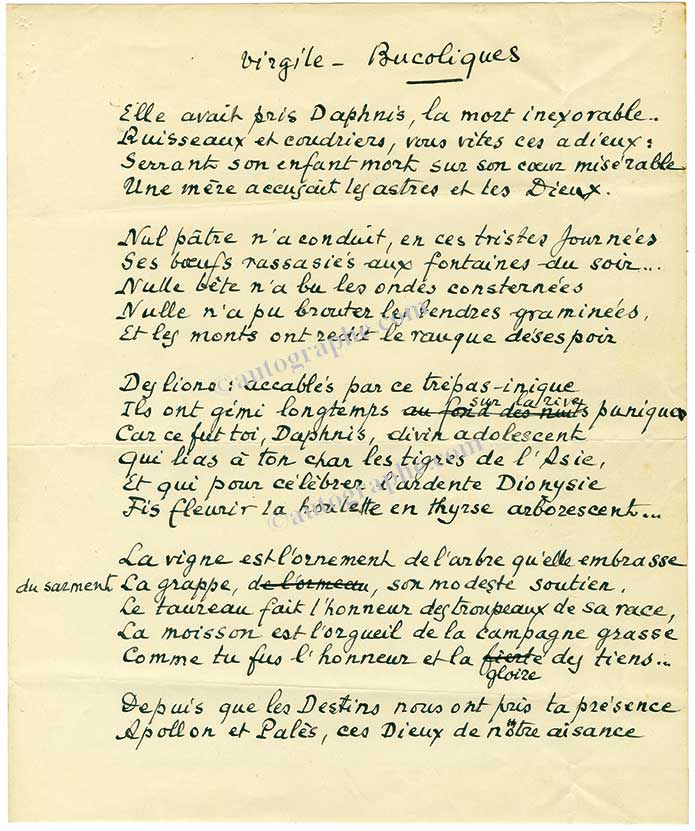 Virgile - Bucoliques
Elle avait pris Daphnis, la mort inexorable..
Ruisseaux et coudriers, vous vîtes ces adieux :
Serrant son enfant mort sur son cœur misérable
Une mère accusait les astres et les Dieux.
Nul pâtre n'a conduit, en ces tristes journées
Ses bœufs rassasiés aux fontaines du soir...
Nulle bête n'a bu les ondes consternées
Nulle n'a pu brouter les tendres graminées,
Et les monts ont redit le rauque désespoir
Des lions : accablés par ce trépas inique
sur la rive
Ils ont gémi longtemps au fond des nuits punique
Car ce fut toi, Daphnis, divin adolescent
Qui lias à ton char les tigres de l'Asie,
Et qui pour célébrer l'ardente Dionysie
Fis fleurir la houlette en thyrse arborescent...
La vigne est l'ornement de l'arbre qu'elle embrasse
du sarment La grappe, de l'ormeau, son modeste soutien,
Le taureau fait l'honneur des troupeaux de sa race,
La moisson est l'orgueil de la campagne grasse
Comme tu fus l'honneur et la fierté des tiens...
gloire
Depuis que les Destins nous ont pris ta présence
Apollon et Palès, ces Dieux de nôtre aisance
©autographe.com
©autographe.com